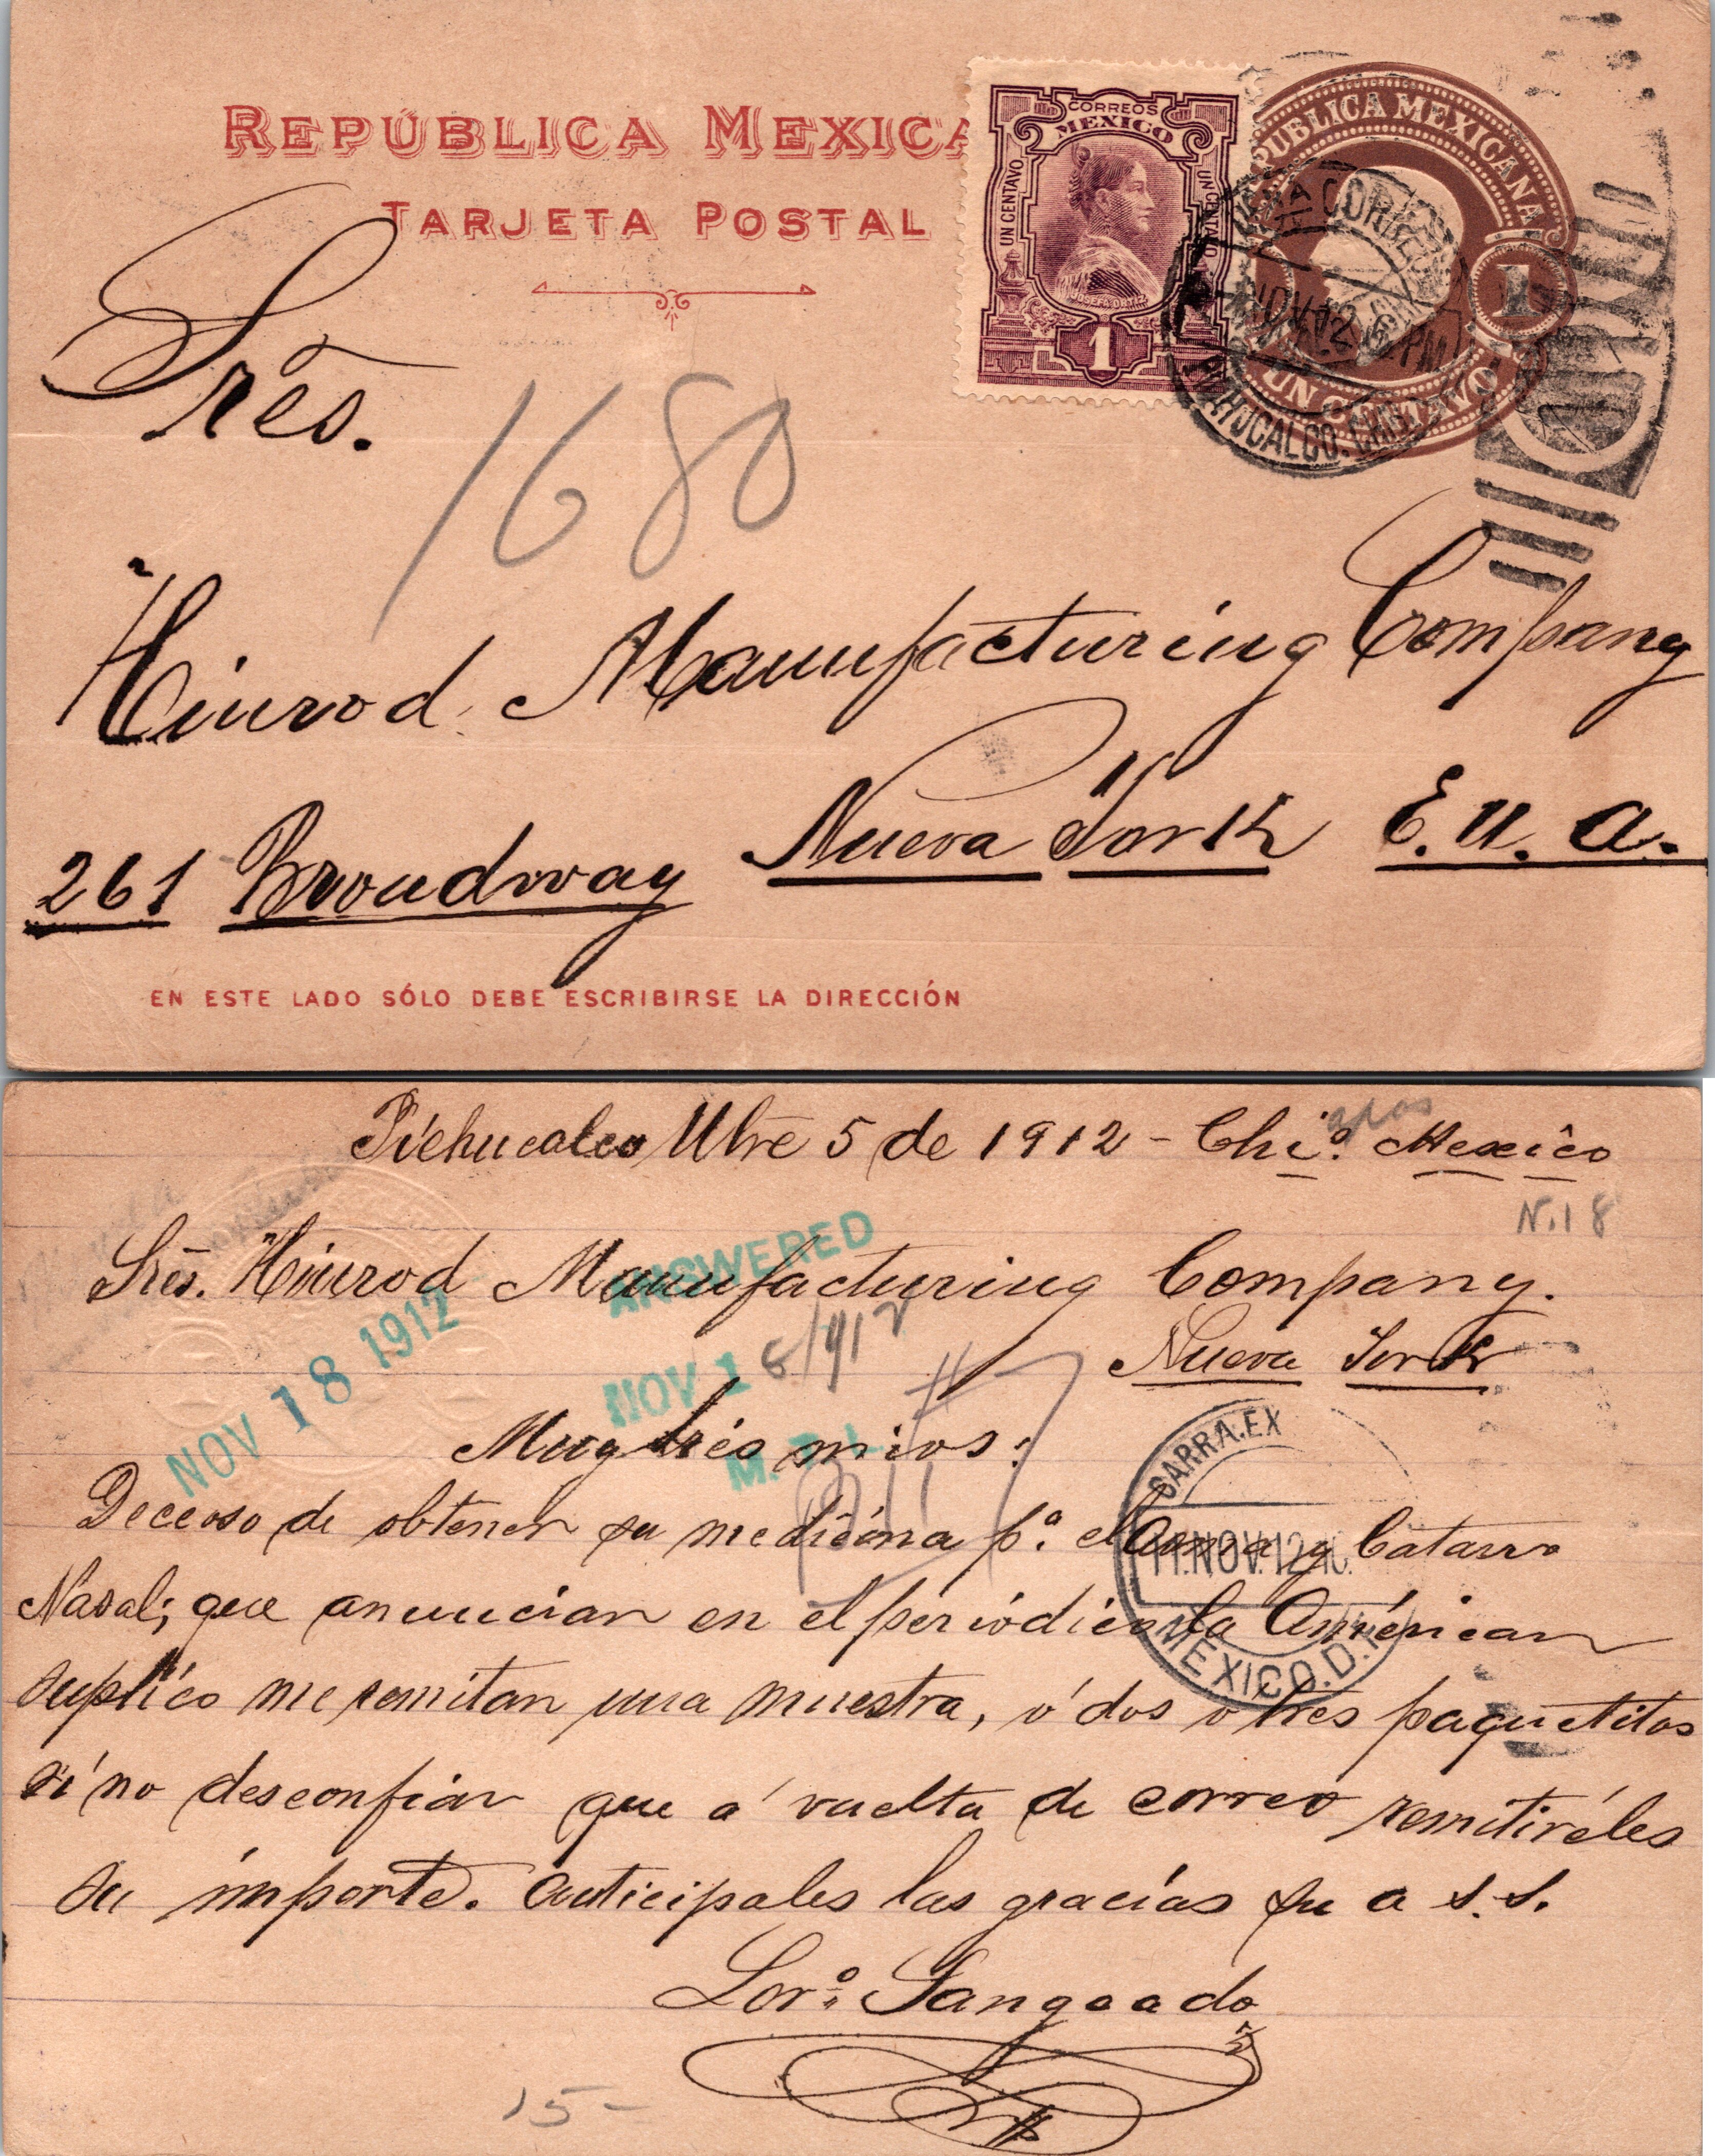 REPÚBLICA MEXICA
TARJETA POSTAL
CORREOS
MEXICO
UN CENTAVO
UN CENTAVO
JOSEFA ORTIZ
1
PUBLICA MEXICANA
1
UN CENTAVO
CORREOS
NOV 12 6 PM
PICHUCALCO. CHIS.
Srẽs.
1680
Hinrod Manufacturing Company
261 Broudway Nueva York E. U. A.
EN ESTE LADO SÓLO DEBE ESCRIBIRSE LA DIRECCIÓN
Pichucalco Nbre 5 de 1912 - Chi.º México
N. 18
ANSWERED
Srẽs. Hinrod Manufacturing Company.
NOV 18 1912
NOV 1 8/912
Nueva York
Muy Srés mios:
CARRA. EX
11. NOV. 12
MEXICO. D. F.
Deceoso de obtener su medicina p.ª el Asma y Catarro
Nasal; que anuncian en el periódico la Américan
suplíco me remitan una muestra, ó dos o tres paquetitos
sí no desconfiar que á vuelta de correo remitiréles
su importe. Anticipales las gracías su a s.s.
Lor.º Sangeado
15-